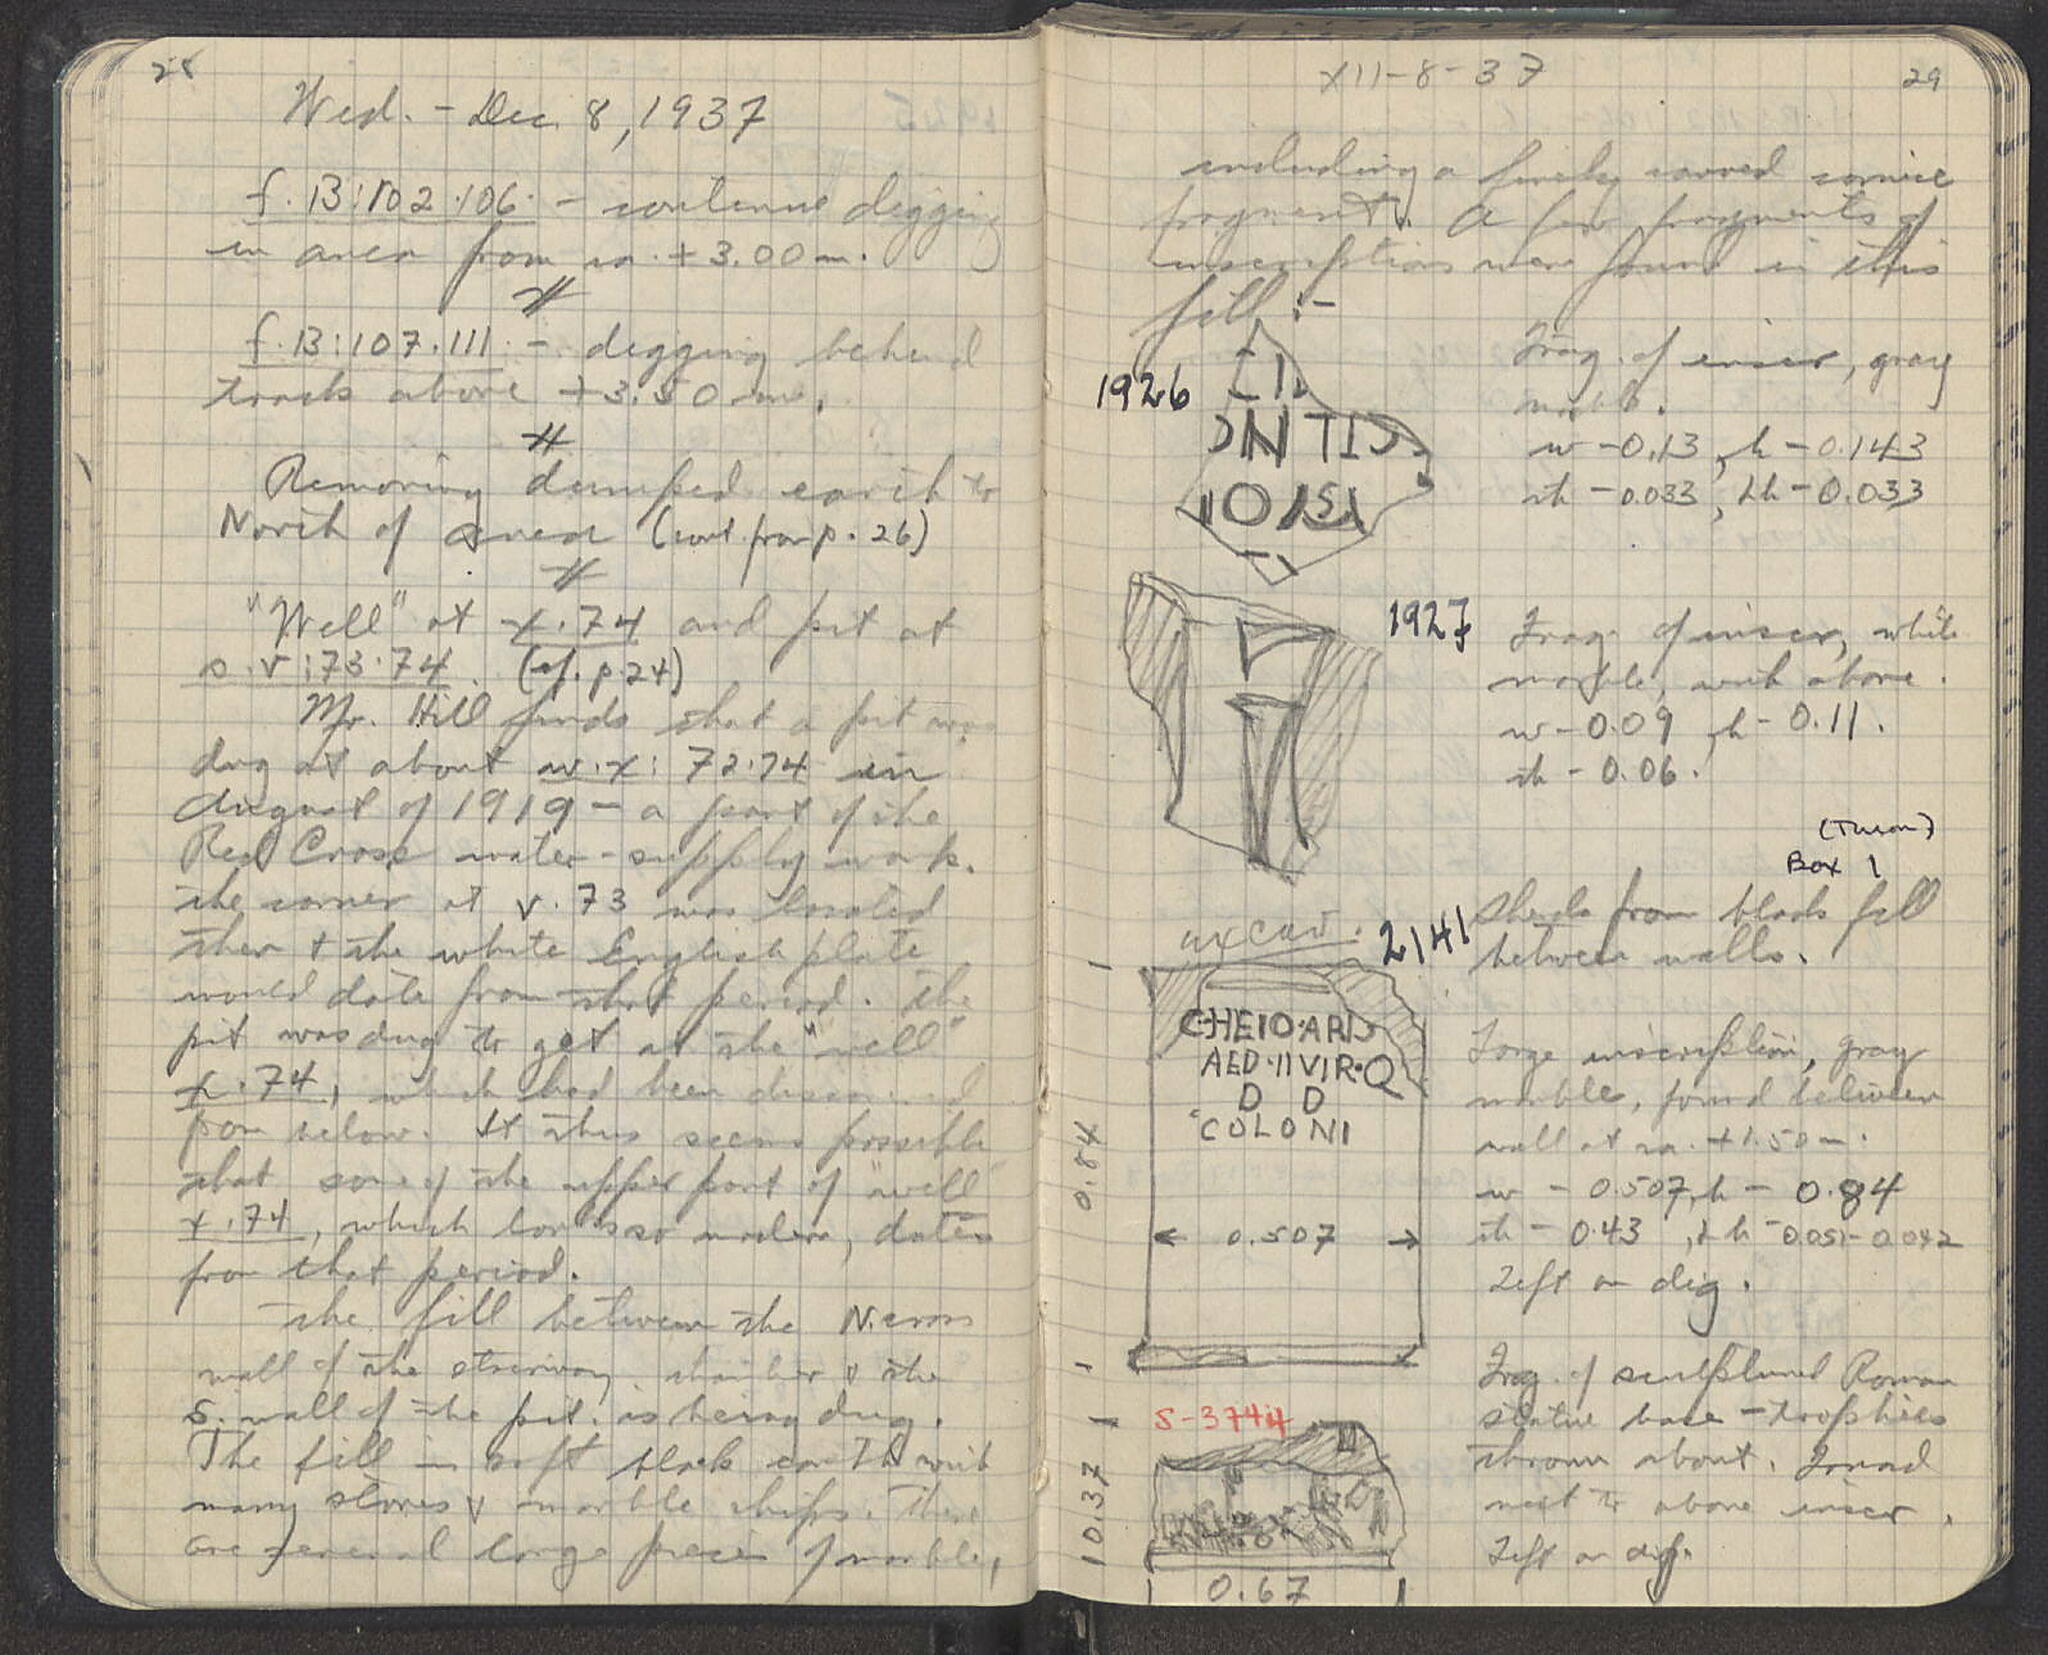 28
Wed. - Dec. 8, 1937
f. B:102.106. - continue digging
in area from ca. +3.00 m.
f. B:107.111. - digging behind
track above +3.50 m.
Removing dumped earth to
North of area (cont. from p. 26)
"Well" at x.74 and pit at
s.v:73.74 (cf. p. 24)
Mr. Hill finds that a pit was
dug at about w.x: 72.74 in
August of 1919 - a part of the
Red Cross water-supply work.
The corner at v.73 was located
then & the white English plate
would date from that period. The
pit was dug to get at the "well"
x.74, which had been discovered
from below. It thus seems possible
that some of the upper part of "well"
x.74, which looks so modern, dates
from that period.
The fill between the N. cross
wall of the stairway chamber & the
S. wall of the pit is being dug.
The fill is soft black earth with
many stones & marble chips. There
are several large pieces of marble,
XII-8-37
29
including a finely carved cornice
fragment. A few fragments of
inscriptions were found in this
fill :-
1926
Frag. of inscr, gray
marble.
w - 0.13, h - 0.143
th - 0.033, Lh - 0.033
1927
Frag. of inscr, white
marble, with above.
w - 0.09, h - 0.11.
th - 0.06.
(Thrown)
Box 1
Sherds from black fill
between walls.
uncat.
2141
CHEIO·ARIS
AED·IIVIR·Q
D D
COLONI
0.84
0.507
Large inscription, gray
marble, found between
wall at ca. +1.50 m.
w - 0.507, h - 0.84
th - 0.43, Lh - 0.051-0.042
Left on dig.
S-3744
0.37
0.67
Frag. of sculptured Roman
statue base - trophies
thrown about. Found
next to above inscr.
Left on dig.